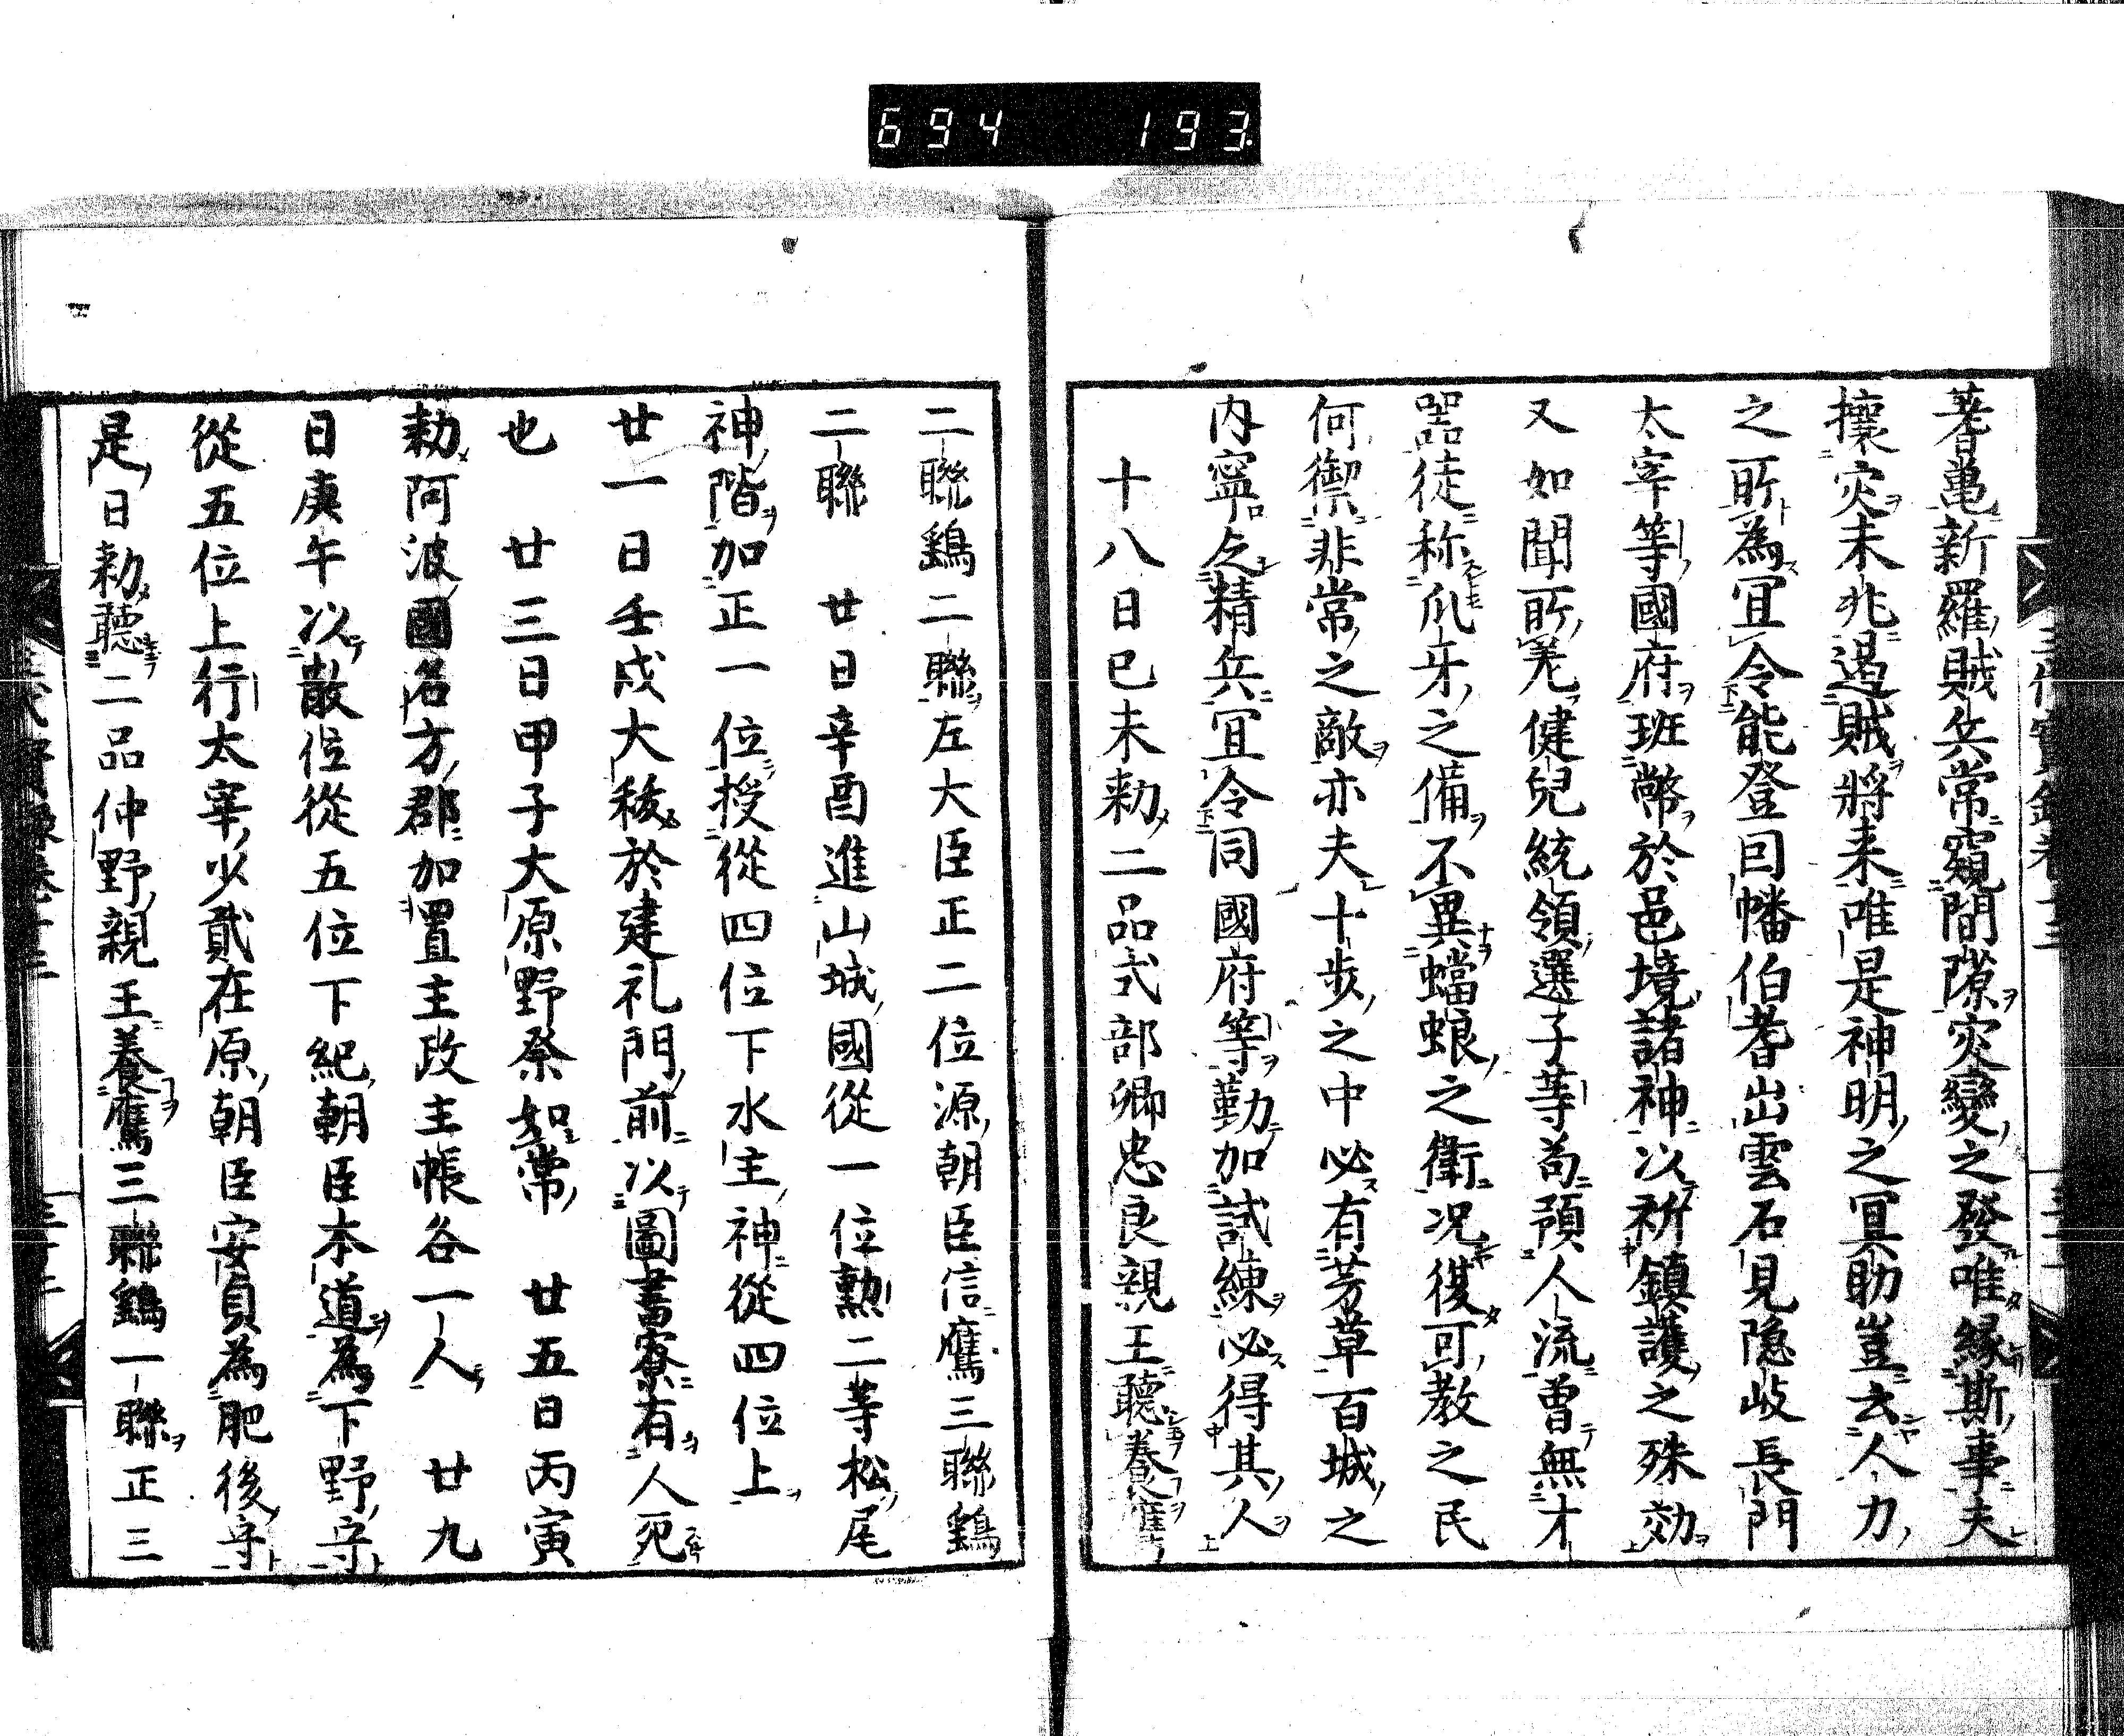 694 193
蓍亀新羅賊兵常窺間隙灾變之發唯縁斯事夫
攘灾未兆遏賊將来唯是神明之冥助豈云人力
之所為冝令能登因幡伯耆出雲石見隠岐長門
太宰等國府班幣於邑境諸神以祈鎮護之殊効
又如聞所差健兒統領選子等苟預人流曽無才
噐徒称爪牙之備不異蟷蜋之衛况復可教之民
何禦非常之敵亦夫十歩之中必有芳草百城之
内寧乏精兵冝令同國府等勤加試練必得其人
十八日巳未勅二品式部卿忠良親王聽養鷹
二聯鷂二聯左大臣正二位源朝臣信鷹三聯鷂
二聯 廿日辛酉進山城國從一位勲二等松尾
神階加正一位授從四位下水主神從四位上
廿一日壬戌大祓於建礼門前以圖書寮有人死
也 廿三日甲子大原野祭如常 廿五日丙寅
勅阿波國名方郡加置主政主帳各一人 廿九
日庚午以散位從五位下紀朝臣本道為下野守
從五位上行太宰少貳在原朝臣安貞為肥後守
是日勅聽二品仲野親王養鷹三聯鷂一聯正三